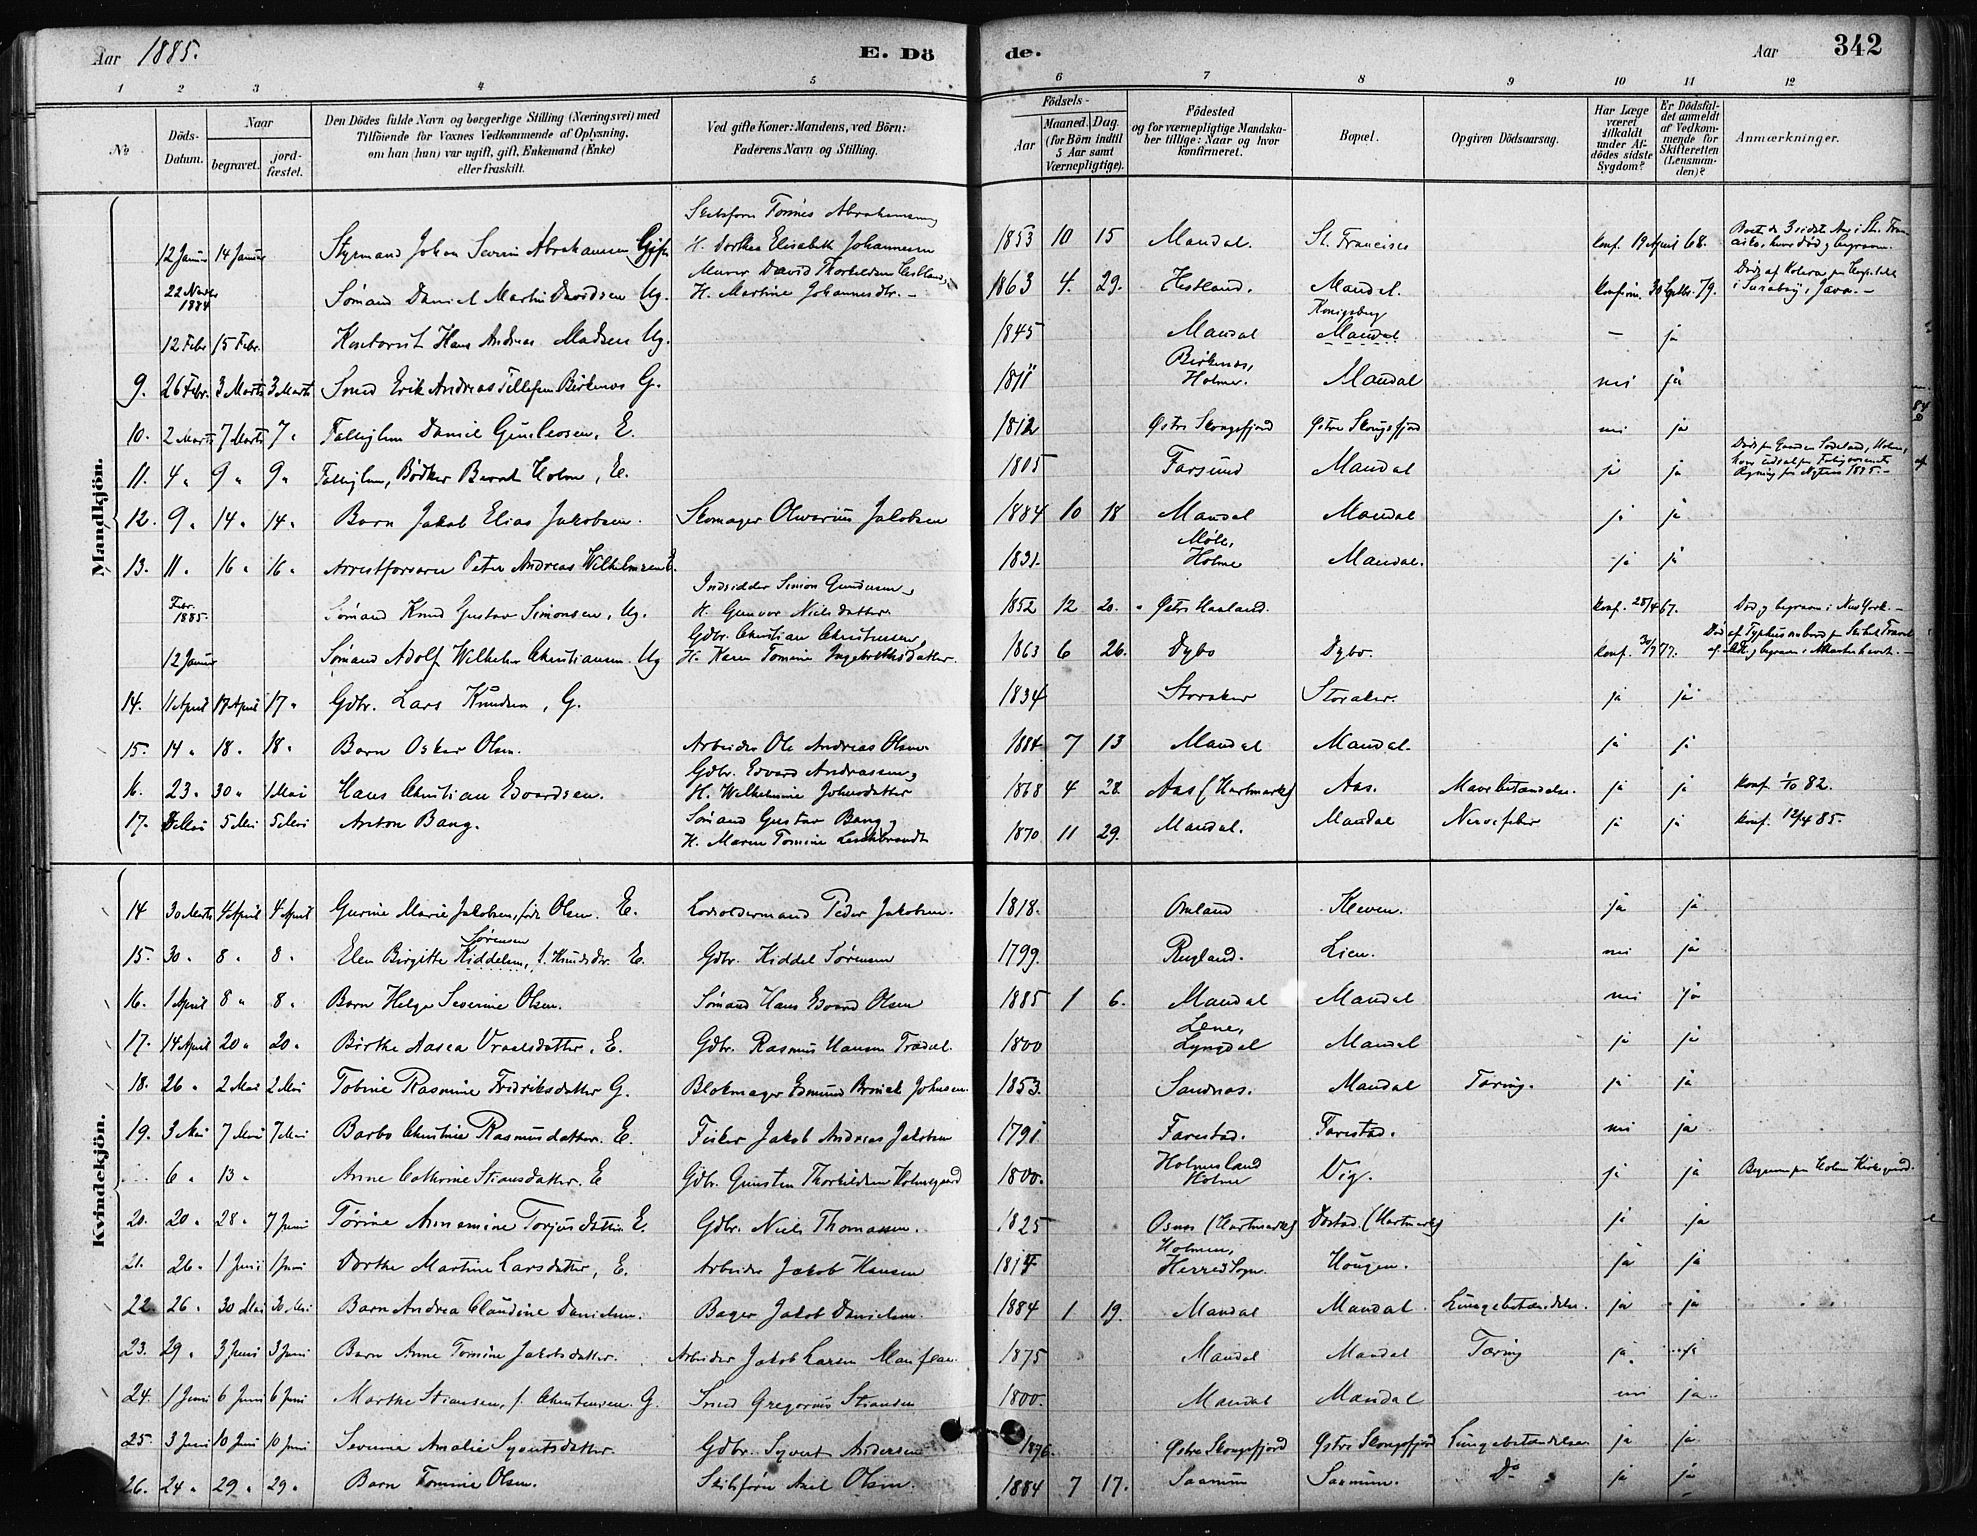 Aar 1885.
E. Dö
de.
Aar
342
1 2 3 4 5 6 7 8 9 10 11 12
No
Döds-Datum.
Naar
begravet.
jord-fæstet.
Den Dödes fulde Navn og borgerlige Stilling (Næringsvei) med
Tilföiende for Voxnes Vedkommende af Oplysning,
om han (hun) var ugift, gift, Enkemand (Enke)
eller fraskilt.
Ved gifte Koner: Mandens, ved Börn:
Faderens Navn og Stilling.
Födsels-
Aar
Maaned. Dag.
(for Börn indtil
5 Aar samt
Værnepligtige).
Födested
og for værnepligtige Mandska-
ber tillige: Naar og hvor
konfirmeret.
Bopæl.
Opgiven Dödsaarsag.
Har Læge
været
tilkaldt
under Af-
dödes sidste
Sygdom?
Er Dödsfal-
det anmeldt
af Vedkom-
mende for
Skifteretten
(Lensman-
den)?
Anmærkninger.
Mandkjön.
12 Januar 14 Januar Styrmand Johan Severin Abrahamsen Gift Skibsförer Tönnes Abrahamsen, H. Dorthea Elisabeth Johannesen 1853 10 15 Mandal. St. Francisco konf. 19 April 68.
22 Novbr 1884 Sømand Daniel Martin Davidsen Ug. Murer David Thorkildsen Hestland, H. Martine Johannesdtr. 1863 4. 29. Hestland. Mandal. Konfirm. 30 Septbr. 79. Död af Kolera paa Hospitalet i Surabay, Java.
12 Febr 15 Febr. Kontorist Hans Andreas Madsen Ug. 1845 Mandal Königsberg Mandal – ja
9. 26 Febr. 3 Marts 3 Marts Smed Erik Andreas Tellefsen Birkenes G. 1811 Birkenes, Holme. Mandal nei ja
10. 2 Marts 7 Marts 7 " Fattiglem Daniel Gunleosen, E. 1812 Østre Skougsfjord Østre Skougsfjord nei ja
11. 4 " 9 " 9 " Fattiglem, Bödker Bernt Holm, E. 1805 Farsund Mandal ja ja
12. 9 " 14 " 14 " Barn Jakob Elias Jakobsen. Skomager Olvarius Jakobsen 1884 10 18 Mandal Mandal ja ja
13. 11 " 16 " 16 " Arrestforvarer Peter Andreas Wilhelmsen E. 1831. Möll, Holme Mandal. ja ja
Febr. 1885. Sømand Knud Gustav Simonsen, Ug. Indsidder Simon Gundersen, H. Gunvor Nielsdatter 1852 12 20. Østre Haaland. konf. 28/4 67. Död og begraven i New York.
12 Januar Sømand Adolf Wilhelm Christiansen. Ug Gdbr. Christian Christensen, H. Karen Tomine Ingebrethsdatter. 1863 6 26. Dybo Dybo. konf. 30/9 77.
14. 11 April 17 April 17 " Gdbr. Lars Knudsen, G. 1834 Storaker Storaker. ja ja
15. 14 " 18 " 18 " Barn Oskar Olsen. Arbeider Ole Andreas Olsen 1884 7 13 Mandal Mandal. ja ja
16. 23 " 30 " 1 Mai Hans Christian Edvardsen. Gdbr. Edvard Andreassen, H. Wilhelmine Johnsdatter 1868 4 28. Aas (Hartmark) Aas. Mavebetændelse. ja ja konf. 1/10 82.
17. 5 Mai 5 Mai Anton Bang. Sömand Gustav Bang, H. Maren Tomine 1870 11 29. Mandal. Mandal Nervefeber ja ja konf. 12/4 85.
Kvindekjön.
14 30 Marts 4 April 4 April Gurine Marie Jakobsen, född Olsen. E. Lodsoldermand Peder Jakobsen. 1818. Omland Kleven. ja ja
15. 30 " 8 " 8 " Elen Birgitte Kiddelsen, Sørensen f. Knudsdr. E. Gdbr. Kiddel Sörensen 1799. Rugland. Lien. nei ja
16. 1 April 8 " 8 " Barn Helga Severine Olsen. Sömand Hans Edvard Olsen 1885 1 6. Mandal Mandal nei ja
17. 14 April 20 " 20 " Birthe Aasea Vraalsdatter, E. Gdbr. Rasmus Hansen Trædal. 1800 Lene, Lyngdal Mandal ja ja
18. 26 " 2 Mai 2 Mai Tobine Rasmine Fredriksdatter G. Blokmager Edmund Johnsen 1853. Sandnes. Mandal Tæring. ja ja
19. 3 Mai 7 Mai 7 Mai Barbo Christine Rasmusdatter. E. Fisker Jakob Andreas Jakobsen 1791 Farestad. Farestad. nei ja
6 " 13 " Anne Cathrine Stiansdatter. E Gdbr. Gunsten Thorkildsen Holmegaard 1800. Holmesland Holme Vig. ja ja Begraven paa Holme Kirkegaard.
20. 20 " 28 " 7 Juni Törine Annemine Torjusdatter E. Gdbr. Niels Thomassen. 1825 Osnes (Hartmark) Dörstad (Hartmark) ja ja
21. 26 " 1 Juni 1 Juni Dorthe Martine Larsdatter, E. Arbeider Jakob Hansen 1814 Holmen, Herred Sogn. Haugen. ja ja
22 26 " 30 Mai 30 Mai Barn Andrea Claudine Danielsen. Bager Jakob Danielsen. 1884 1 19. Mandal Mandal Lungebetændelse. ja ja
23. 29 " 3 Juni 3 Juni Barn Anne Tomine Jakobsdatter. Arbeider Jakob Larsen 1875 Mandal Mandal Tæring ja. ja
24. 1 Juni 6 Juni 6 Juni Marthe Stiansen, f. Christensen. G. Smed Gregorius Stiansen 1800. Mandal Mandal nei ja
25. 3 Juni 10 Juni 10 Juni Severine Amalie Syvertsdatter. Gdbr. Syvert Andersen 1876. Østre Skougsfjord Østre Skougsfjord Lungebetændelse ja ja
26. 24 " 29 " 29 " Barn Tomine Olsen. Skibsförer Axel Olsen. 1884 7 17. Saanum Saanum. Do ja ja